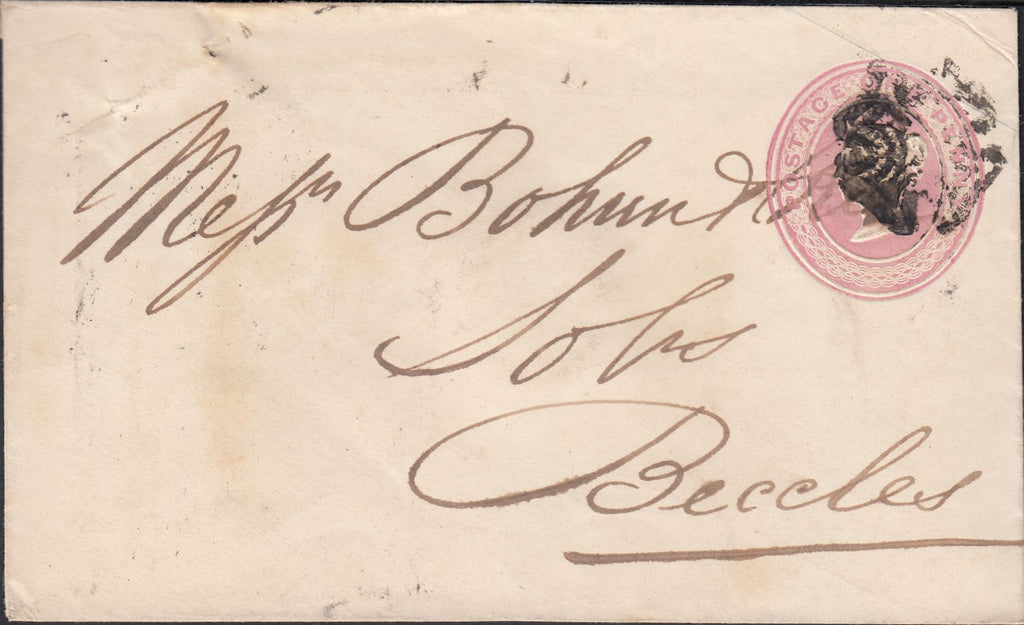 Messrs Bohun &
Solrs
Beccles
POSTAGE ONE PENNY